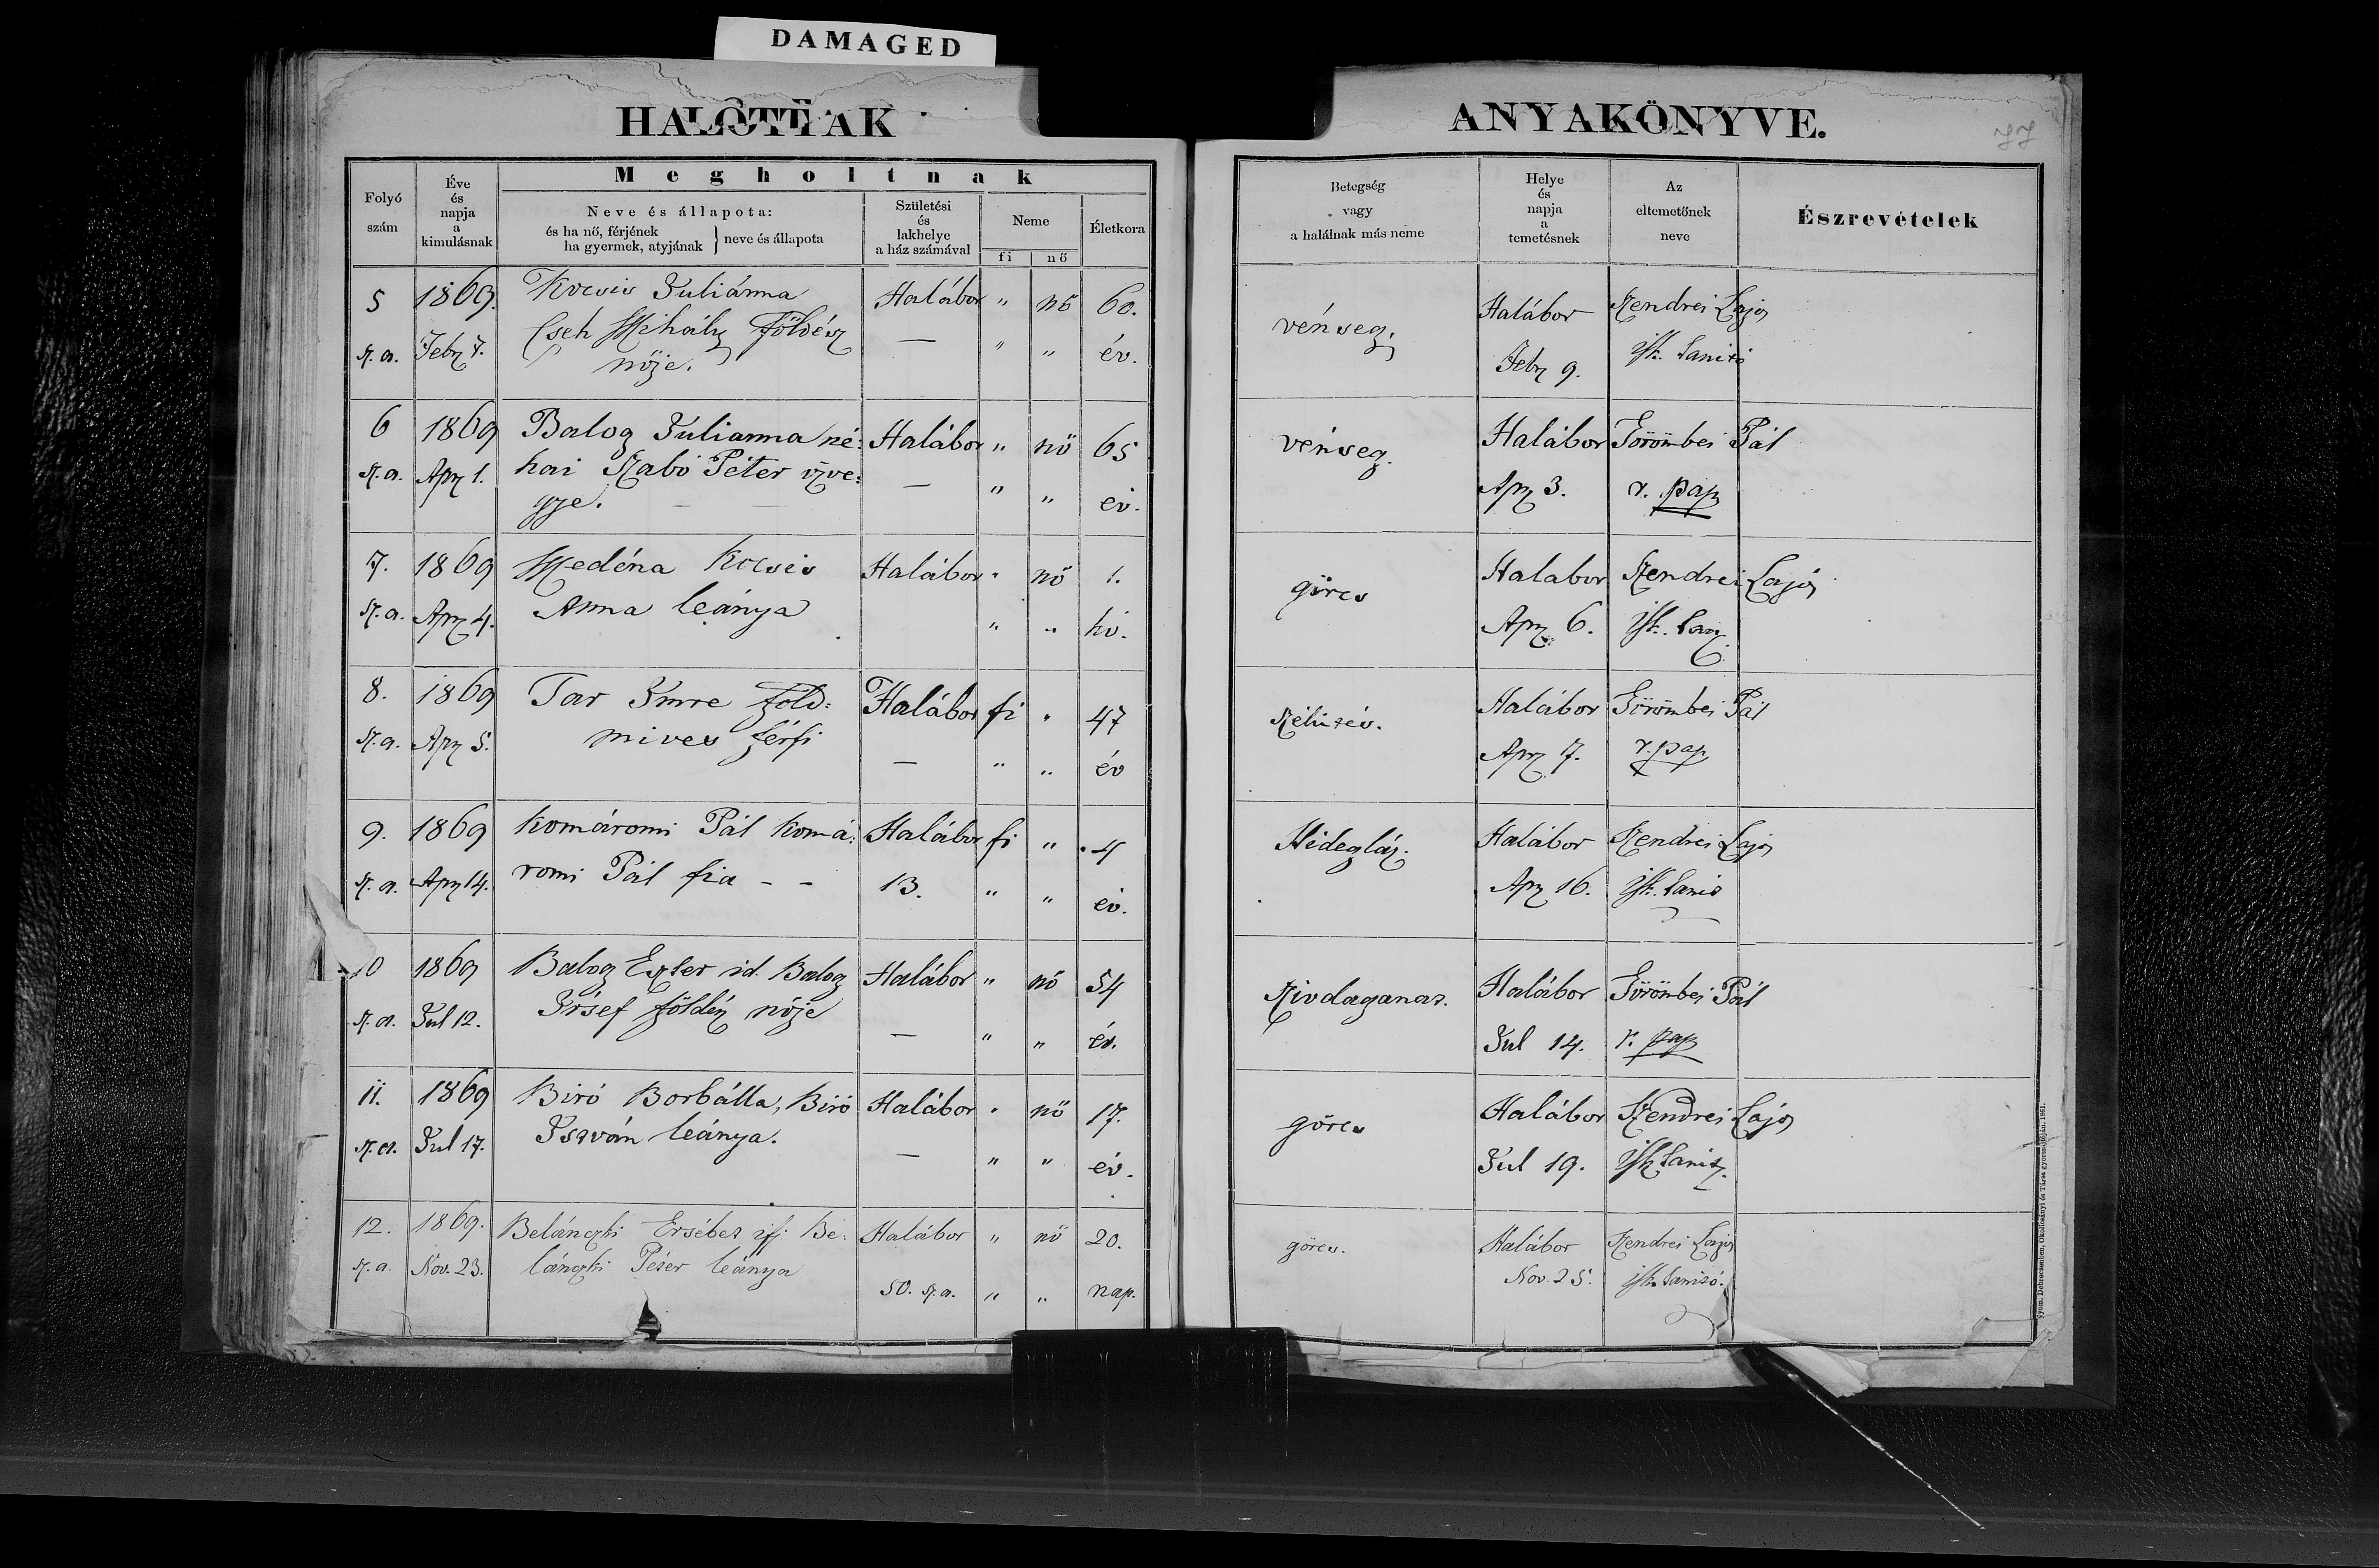 DAMAGED
HALOTTAK
ANYAKÖNYVE.
77
Folyó
szám
Éve
és
napja
a
kimulásnak
Megholtnak
Neve és állapota:
és ha nő, férjének
ha gyermek, atyjának } neve és állapota
Születési
és
lakhelye
a ház számával
Neme
fi nő
Életkora
Betegség
vagy
a halálnak más neme
Helye
és
napja
a
temetésnek
Az
eltemetőnek
neve
Észrevételek
5 1869. Kocsis Juliánna Halábor " nő 60. vénség. Halábor Szendrei Lajos
sz. a. Febr 7. Cseh Mihály földész — " " év. Febr 9. isk. tanitó
nője.
6 1869 Balog Julianna né: Halábor " nő 65 vénség. Halábor Törömbei Pál
sz. a. Apr 1. hai Szabó Péter özve: — " " év. Apr 3. r. pap
gye. — —
7. 1869 Medéna Kocsis Halábor " nő 1. görcs Halabor Szendrei Lajos
sz. a. Apr 4. Anna leánya " " hó. Apr 6. isk. tan
8. 1869 Tar Imre föld: Halábor fi " 47 Szélütés. Halábor Törömbei Pál
sz. a. Apr 5. mives férfi — " " év Apr 7. r. pap
9. 1869 Komáromi Pál Komá: Halábor fi " 4 Hidegláz. Halábor Szendrei Lajos
sz. a. Apr 14. romi Pál fia - - 13. " " év. Apr 16. isk. tanit
10 1869 Balog Eszter id. Balog Halábor " nő 54 Szivdaganat. Halábor Törömbei Pál
sz. a. Jul 12. Jósef földész nője — " " év. Jul 14. r. pap
11. 1869 Biró Borbálla, Biró Halábor " nő 17. görcs Halábor Szendrei Lajos
sz. a. Jul 17. István leánya. — " " év. Jul 19. isk tanit
12. 1869. Belánczki Ersébet ifj. Be: Halábor " nő 20. görcs. Halábor Szendrei Lajos
sz. a. Nov. 23. lánczki Péter leánya 50. sz. a. " " nap. Nov. 25. isk. tanitó.